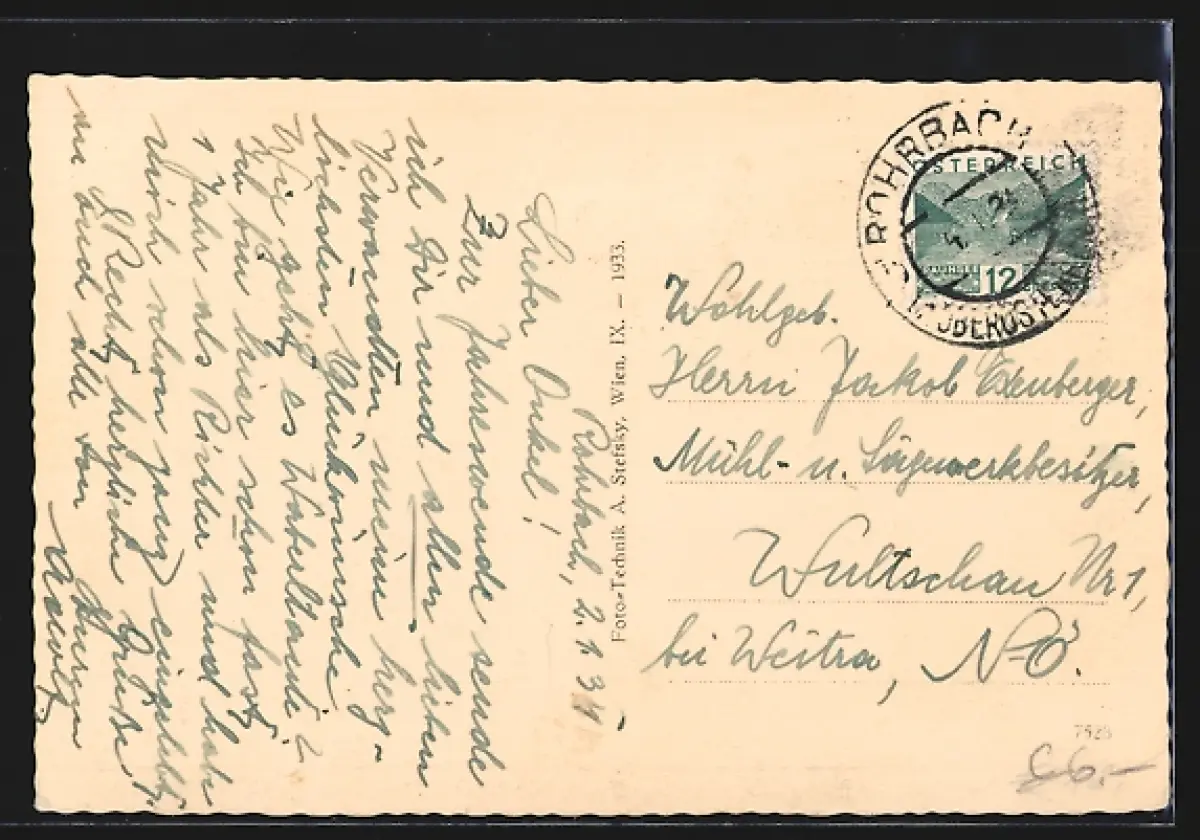 Rohrbach, 2. 1. 34
Lieber Onkel!
Zur Jahreswende sende
ich Dir und allen lieben
Verwandten meine herz-
lichsten Glückwünsche.
Wie geht es Waberltant?
Ich bin hier schon fast
1 Jahr als Richter und habe
mich schon ganz eingelebt.
Recht herzliche Grüße
an Euch alle von
Eurem
ROHRBACH
OBERÖST
ÖSTERREICH
12
Foto-Technik A. Stefsky, Wien, IX. — 1933.
Wohlgeb.
Herrn Jakob Exenberger,
Mühl- u. Sägewerkbesitzer,
Wultschau Nr 1,
bei Weitra, N-Ö.
7528
6.-